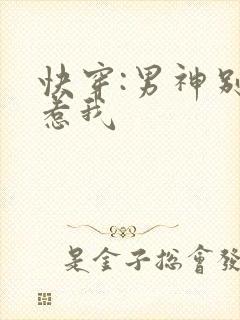 快穿:男神别
惹我
是金子总會發